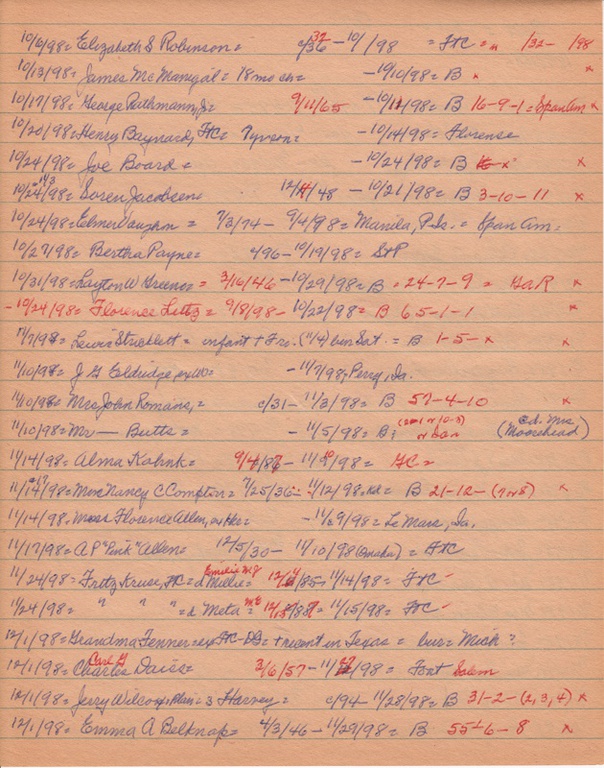 10/6/98= Elizabeth S Robinson= c/36 32 -10/1/98 = FtC = " /32- /98
10/13/98= James McManigal= 78mo ch= -10/10/98= B x x
10/17/98= George Ruthmann, Jr= 9/11/65 -10/11/98= B 16-9-1= Span Am x
10/20/98= Henry Baynard, FtC= Tyrson= -10/14/98= Florence
10/24/98= Joe Board= -10/24/98= B x x
10/24/98= Soren Jacobsen= 12/ /48 -10/21/98= B 3-10-11 x
10/24/98= Elmer Vaughn = 7/3/74 - 9/4/98= Manila, P.Is. = Span Am=
10/27/98= Bertha Payne= c/96-10/19/98= StP
10/31/98= Layton W Greene= 3/16/46 -10/29/98= B = 24-7-9 = GaR x
-10/24/98= Florence Luttz= 9/8/98- 10/22/98= B 65-1-1 x
11/7/98= Lewis Stricklett= infant + Fri. (11/4) bur Sat. = B 1-5-x x
11/10/98= J G Eldridge, ex W= -11/7/98, Perry, Ia.
11/10/98= Mrs John Romans,= c/31- 11/3/98= B 57-4-10 x
11/10/98= Mr — Butts= -11/5/98= B; Ed. Mrs (Moorehead)
11/14/98= Alma Kahnk= 9/4/87- 11/ /98= GC=
11/14/98= Mrs Nancy C Compton= 7/25/36- 11/12/98, = B 21-12-(7 or 8) x
11/14/98, Miss Florence Allen, ex Her= -11/ 9/98= Le Mars, Ia.
11/17/98= A P "Pink" Allen= 12/5/30- 11/10/98 (Omaha) = FtC
11/24/98= Fritz Kruse, FtC= d Millie= Emilie M J 12/ /85- 11/14/98= FtC-
11/24/98= " " "= d Meta= ME 12/ /87- 11/15/98= FtC-
12/1/98= Grandma Fenner= ex FtC- = + recent in Texas= bur= Mich?
12/1/98= Charles Daiss= Carl G 3/6/57- 11/ /98= Font Salem
12/1/98= Jerry Wilcox, s Plain= 3 Harney= c/94- 11/28/98= B 31-2-(2,3,4) x
12/1/98= Emma A Belknap= 4/3/46- 11/29/98= B 55-6-8 x